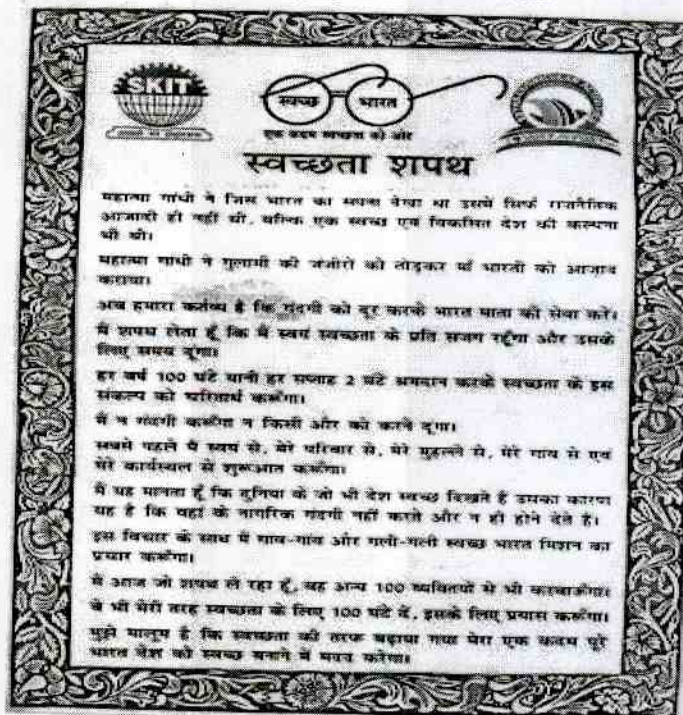 SKIT
स्वच्छ भारत
एक कदम स्वच्छता की ओर
स्वच्छता शपथ
महात्मा गांधी ने जिस भारत का सपना देखा था उसमें सिर्फ राजनैतिक
आजादी ही नहीं थी, बल्कि एक स्वच्छ एवं विकसित देश की कल्पना
भी थी।
महात्मा गांधी ने गुलामी की जंजीरों को तोड़कर माँ भारती को आजाद
कराया।
अब हमारा कर्तव्य है कि गंदगी को दूर करके भारत माता की सेवा करें।
मैं शपथ लेता हूँ कि मैं स्वयं स्वच्छता के प्रति सजग रहूँगा और उसके
लिए समय दूंगा।
हर वर्ष 100 घंटे यानी हर सप्ताह 2 घंटे श्रमदान करके स्वच्छता के इस
संकल्प को चरितार्थ करूँगा।
मैं न गंदगी करूँगा न किसी और को करने दूंगा।
सबसे पहले मैं स्वयं से, मेरे परिवार से, मेरे मुहल्ले से, मेरे गांव से एवं
मेरे कार्यस्थल से शुरूआत करूँगा।
मैं यह मानता हूँ कि दुनिया के जो भी देश स्वच्छ दिखते हैं उसका कारण
यह है कि वहां के नागरिक गंदगी नहीं करते और न ही होने देते हैं।
इस विचार के साथ मैं गांव-गांव और गली-गली स्वच्छ भारत मिशन का
प्रचार करूँगा।
मैं आज जो शपथ ले रहा हूँ, वह अन्य 100 व्यक्तियों से भी करवाऊँगा।
वे भी मेरी तरह स्वच्छता के लिए 100 घंटे दें, इसके लिए प्रयास करूँगा।
मुझे मालूम है कि स्वच्छता की तरफ बढ़ाया गया मेरा एक कदम पूरे
भारत देश को स्वच्छ बनाने में मदद करेगा।